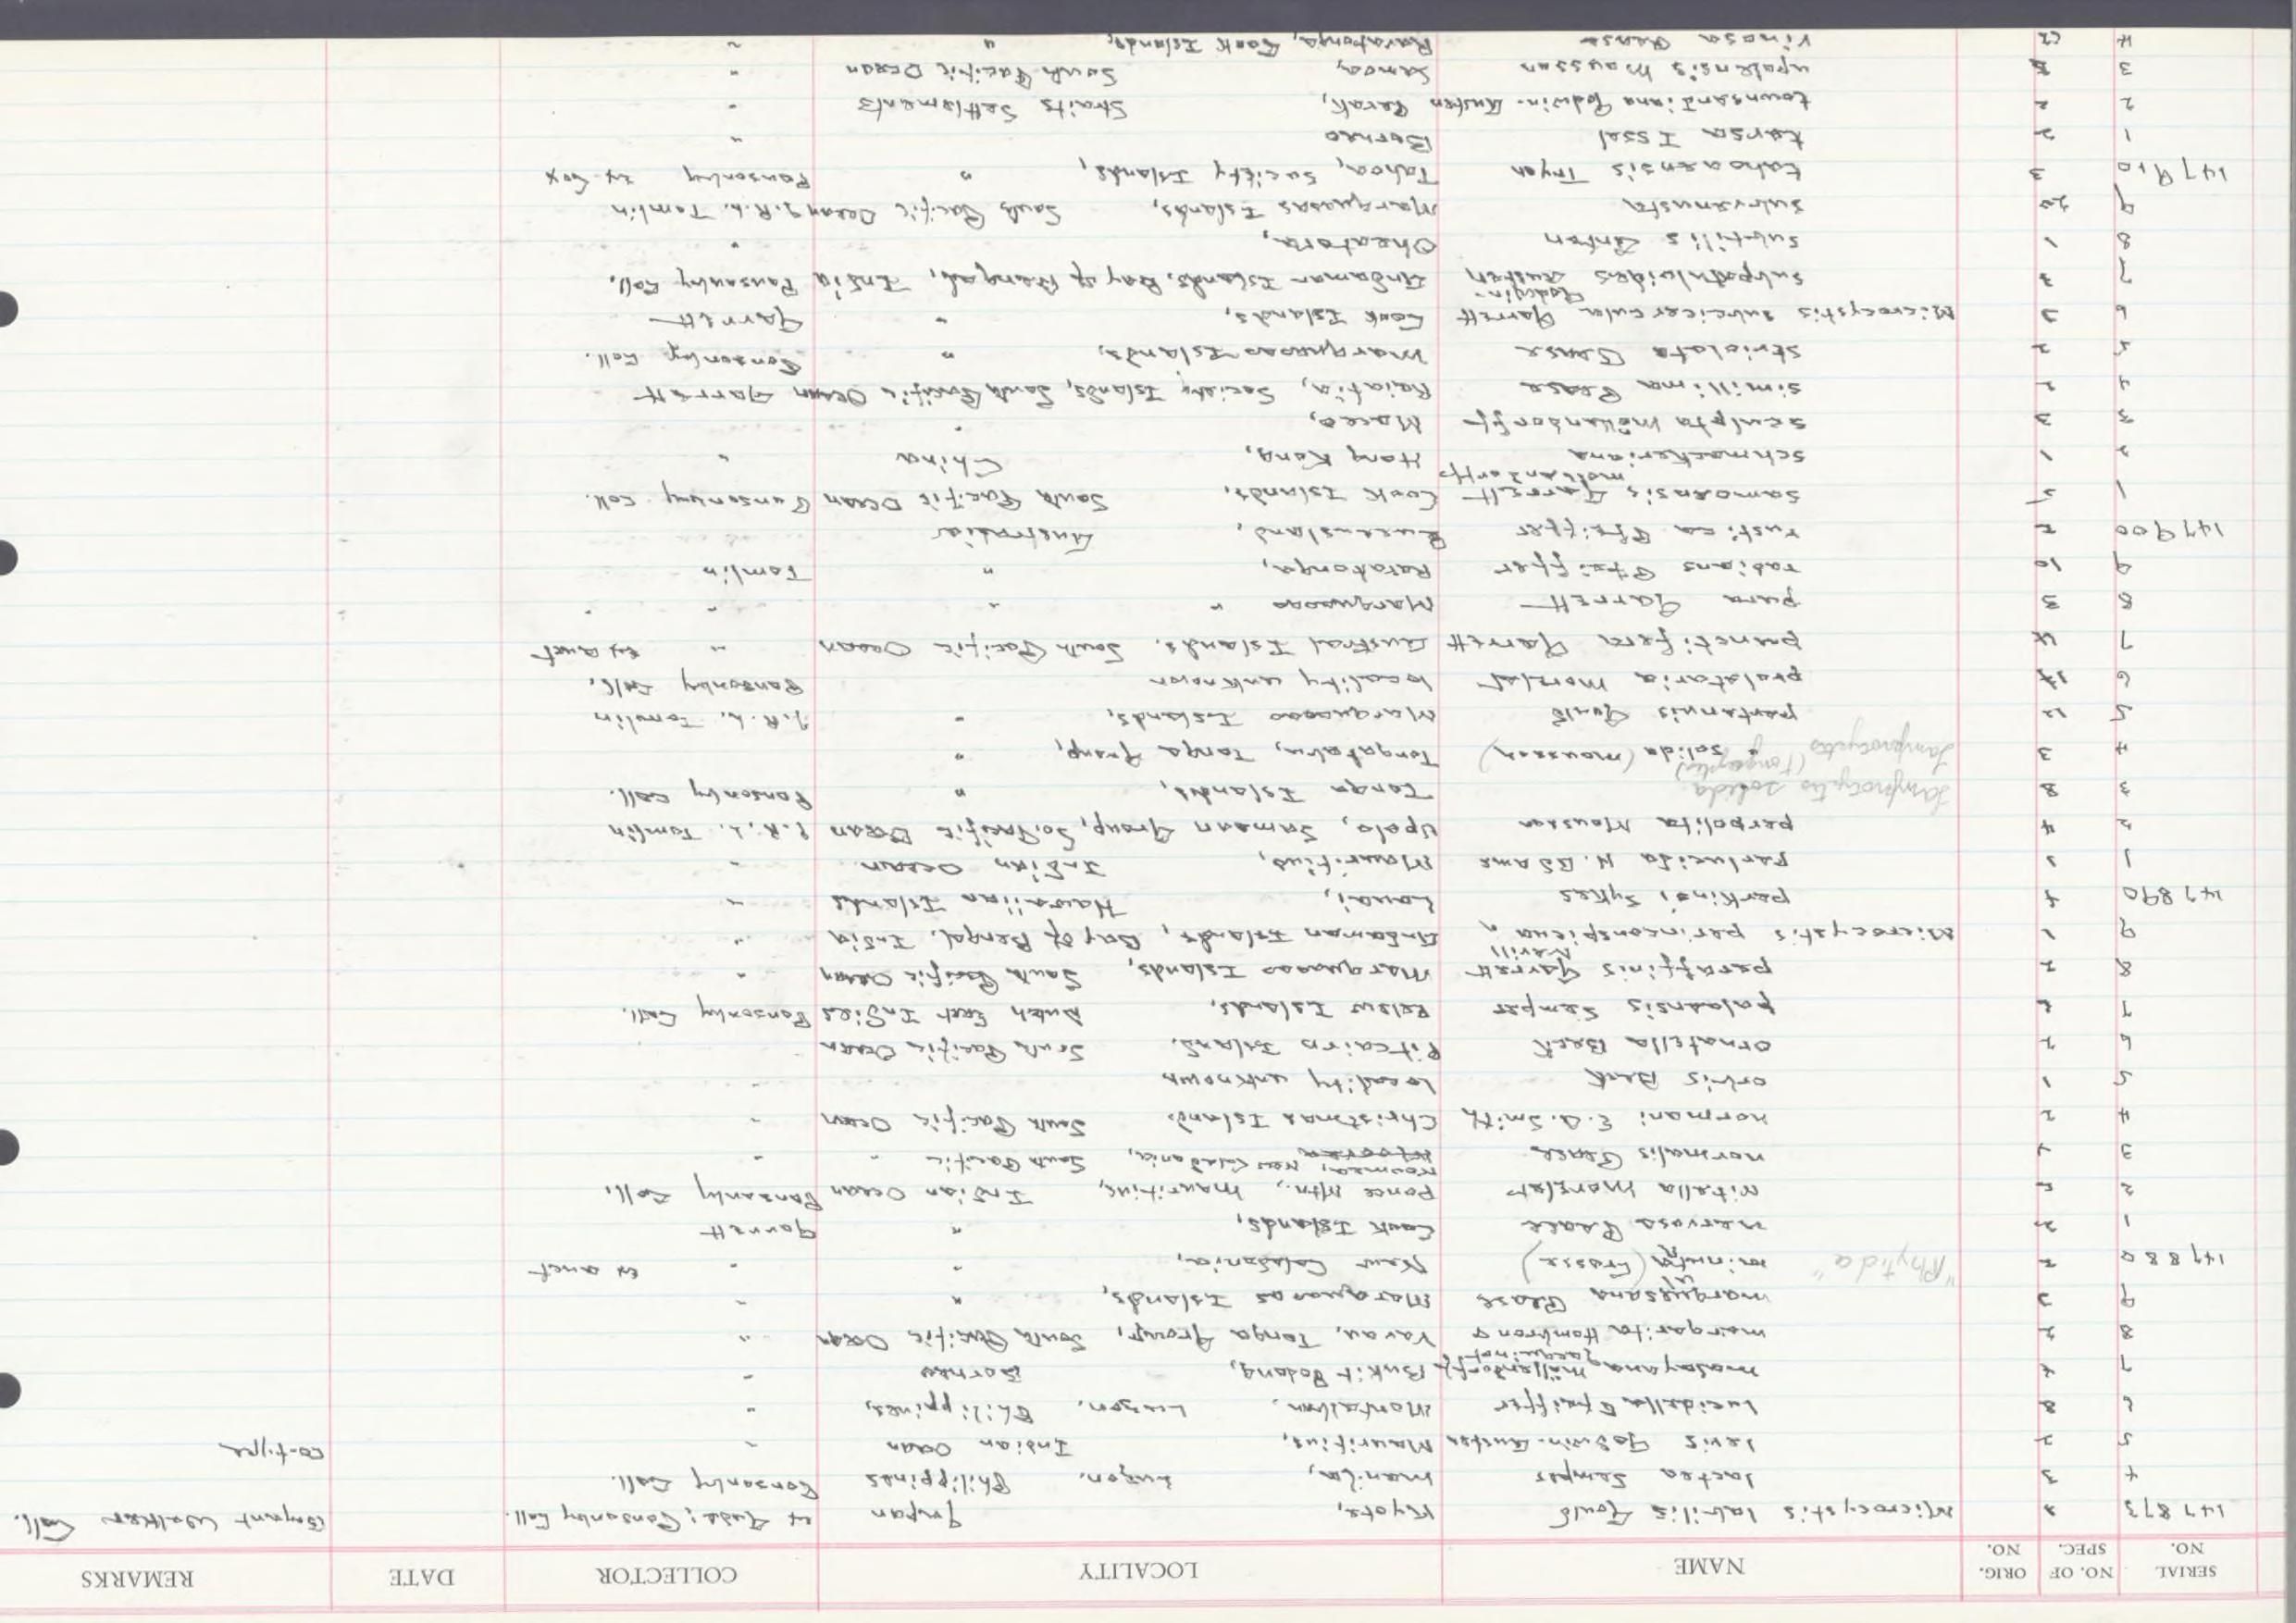 SERIAL NO. NO. OF SPEC. ORIG. NO. NAME LOCALITY COLLECTOR DATE REMARKS
147873 Microcystis labilis Gould Kyoto, Japan ex Gude; Ponsonby Coll. Bryant Walker Coll.
4 3 lactea Semper Manila, Luzon, Philippines Ponsonby Coll.
5 2 levis Godwin-Austen Mauritius, Indian Ocean " co-type
6 8 lucidella Pfeiffer Montalban, Luzon, Philippines, "
7 4 malayana Möllendorff Bukit Borneo "
8 2 margarita Hombron & Jacquinot Vavau, Tonga Group, South Pacific Ocean "
9 3 marquesana Pease Marquesas Islands, " "
147880 2 "Rhytida" minuta (Crosse) New Caledonia, " " ex auct
1 2 nervosa Pease Cook Islands, " Garrett
2 5 nitella Morelet Ponce Mtn., Mauritius, Indian Ocean Ponsonby Coll.
3 4 normalis Pease Noumea, New Caledonia, South Pacific " "
4 2 normani E.A. Smith Christmas Island, South Pacific Ocean "
5 1 orbis Beck locality unknown "
6 2 ornatella Beck Pitcairn Island, South Pacific Ocean
7 6 paladensis Semper Pelew Islands, Dutch East Indies Ponsonby Coll.
8 2 peraffinis Garrett Marquesas Islands, South Pacific Ocean "
9 1 Microcystis perinconspicua Nevill Andaman Islands, Bay of Bengal, India "
147890 4 perkinsi Sykes Lanai, Hawaiian Islands "
1 3 perlucida H. Adams Mauritius, Indian Ocean "
2 4 perpolita Mousson Upolo, Samoan Group, So. Pacific Ocean J.R.L. Tomlin
3 8 Lamprocystis solida Tonga Islands, " Ponsonby Coll.
4 3 Lamprocystis " solida (Mousson) Tongatabu, Tonga Group, "
5 12 pertenuis Gould Marquesas Islands, " J.R.L. Tomlin
6 17 proletaria Morelet locality unknown Ponsonby Coll.
7 4 punctifera Garrett Austral Islands, South Pacific Ocean " ex auct
8 3 pura Garrett Marquesas " " "
9 10 radians Pfeiffer Raratonga, " Tomlin
147900 2 rustica Pfeiffer Queensland, Australia
1 5 samoensis Garrett Cook Islands, South Pacific Ocean Ponsonby Coll.
2 1 schmackeriana Möllendorff Hong Kong, China "
3 3 sculpta Möllendorff Macao, "
4 2 simillima Pease Raiatia, Society Islands, South Pacific Ocean Garrett
5 2 striolata Pease Marquesas Islands, " Ponsonby Coll.
6 3 Microcystis subcicercula Garrett Cook Islands, " Garrett
7 3 subpatuloides Godwin-Austen Andaman Islands, Bay of Bengal, India Ponsonby Coll.
8 1 subtilis Anton Oheatora, "
9 20 subvenusta Marquesas Islands, South Pacific Ocean J.R.L. Tomlin
147910 3 tahaaensis Tryon Tahaa, Society Islands, " Ponsonby ex Cox
1 2 tersa Issel Borneo "
2 2 townsandiana Godwin-Austen Perak, Straits Settlements "
3 upolensis Mousson Samoa, South Pacific Ocean "
4 vinosa Pease Raratonga, Cook Islands, " "